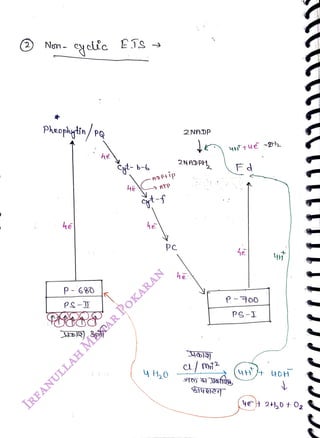 ② Non-cyclic E.T.S →
Pheophytin/PQ
2NADP
4H⁺ + 4e⁻
2NADPH₂
Fd
4e⁻
Cyt-b-6
ADP+ip
ATP
4e⁻
Cyt-f
4e⁻
4e⁻
4e⁻
4H⁺
PC
4e⁻
P-680
PS-II
P-700
PS-I
प्रकाश
प्रकाश
4H₂O
Cl/Mn⁺²
4H⁺ + 4OH⁻
जल का प्रकाशिक
अपघटन
4e⁻ + 2H₂O + O₂
IRFANULLAH MEHAR POKARAN